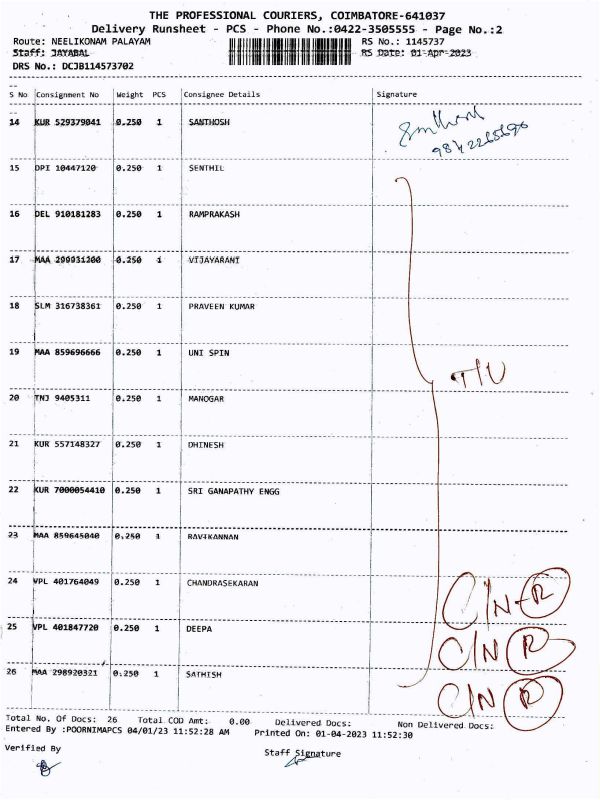 THE PROFESSIONAL COURIERS, COIMBATORE-641037
Delivery Runsheet - PCS - Phone No.:0422-3505555 - Page No.:2
Route: NEELIKONAM PALAYAM RS No.: 1145737
Staff: JAYABAL RS Date: 01-Apr-2023
DRS No.: DCJB114573702
--
S No Consignment No Weight PCS Consignee Details Signature
--
14 KUR 529379041 0.250 1 SANTHOSH
15 DPI 10447120 0.250 1 SENTHIL
16 DEL 910181283 0.250 1 RAMPRAKASH
17 MAA 0.250 1 VIJAYARANI
18 SLM 316738361 0.250 1 PRAVEEN KUMAR
19 MAA 859696666 0.250 1 UNI SPIN
T/U
20 TNJ 9405311 0.250 1 MANOGAR
21 KUR 557148327 0.250 1 DHINESH
22 KUR 7000054410 0.250 1 SRI GANAPATHY ENGG
23 MAA 859645040 0.250 1 RAVIKANNAN
24 VPL 401764049 0.250 1 CHANDRASEKARAN C/N-R
25 VPL 401847720 0.250 1 DEEPA C/N R
26 MAA 298920321 0.250 1 SATHISH C/N R
Total No. Of Docs: 26 Total COD Amt: 0.00 Delivered Docs: Non Delivered Docs:
Entered By :POORNIMAPCS 04/01/23 11:52:28 AM Printed On: 01-04-2023 11:52:30
Verified By Staff Signature